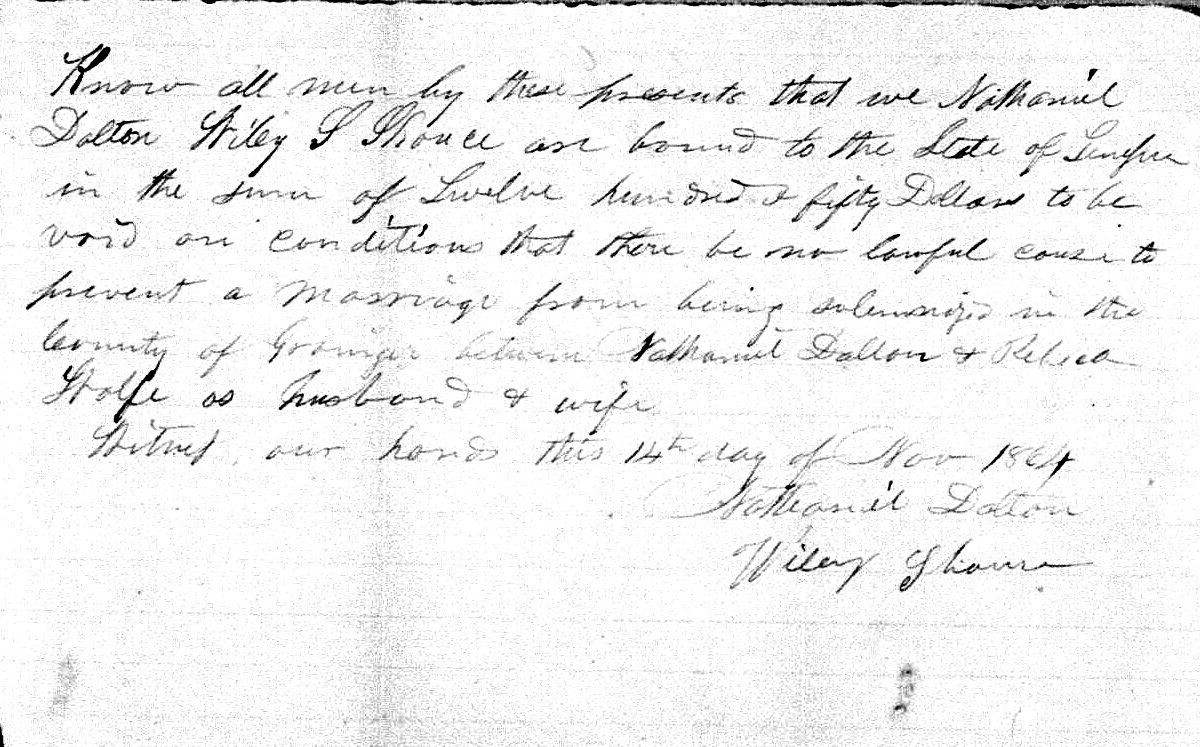 Know all men by these presents that we Nathaniel
Dalton Wiley S Shouce are bound to the State of Tennessee
in the sum of Twelve hundred & fifty Dollars to be
void on conditions that there be no lawful cause to
prevent a marriage from being solemnized in the
County of Grainger between Nathaniel Dalton & Rebeca
Wolfe as husband & wife
Witness our hands this 14th day of Nov 1864
Nathaniel Dalton
Wiley